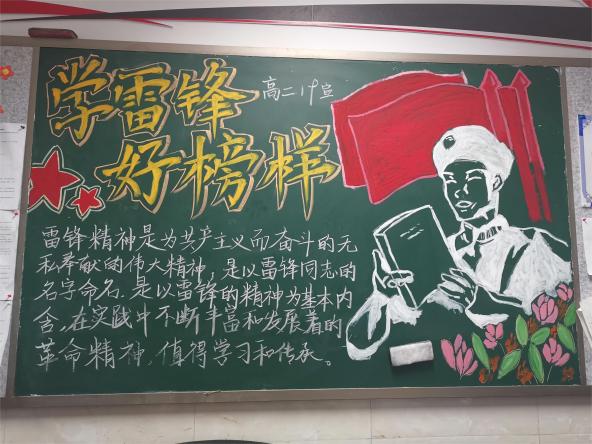 学雷锋
高二19宣
好榜样
雷锋精神是为共产主义而奋斗的无
私奉献的伟大精神，是以雷锋同志的
名字命名，是以雷锋的精神为基本内
含，在实践中不断丰富和发展着的
革命精神，值得学习和传承。